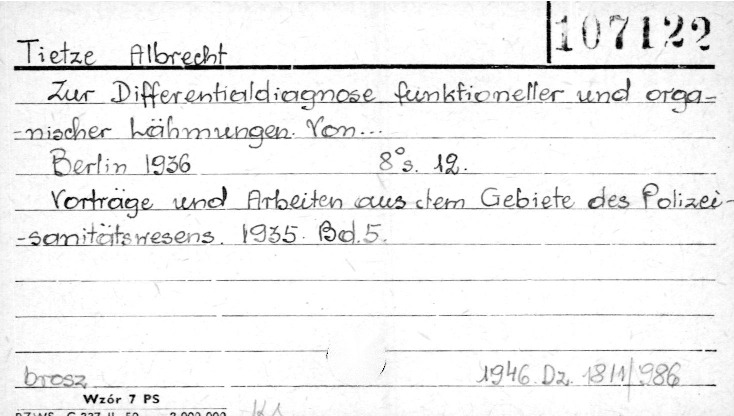 107122
Tietze Albrecht
Zur Differentialdiagnose funktioneller und orga=
=nischer Lähmungen. Von...
Berlin 1936 8° s. 12.
Vorträge und Arbeiten aus dem Gebiete des Polizei-
-sanitätswesens. 1935. Bd. 5.
brosz 1946. Dz. 18/1/986
Wzór 7 PS